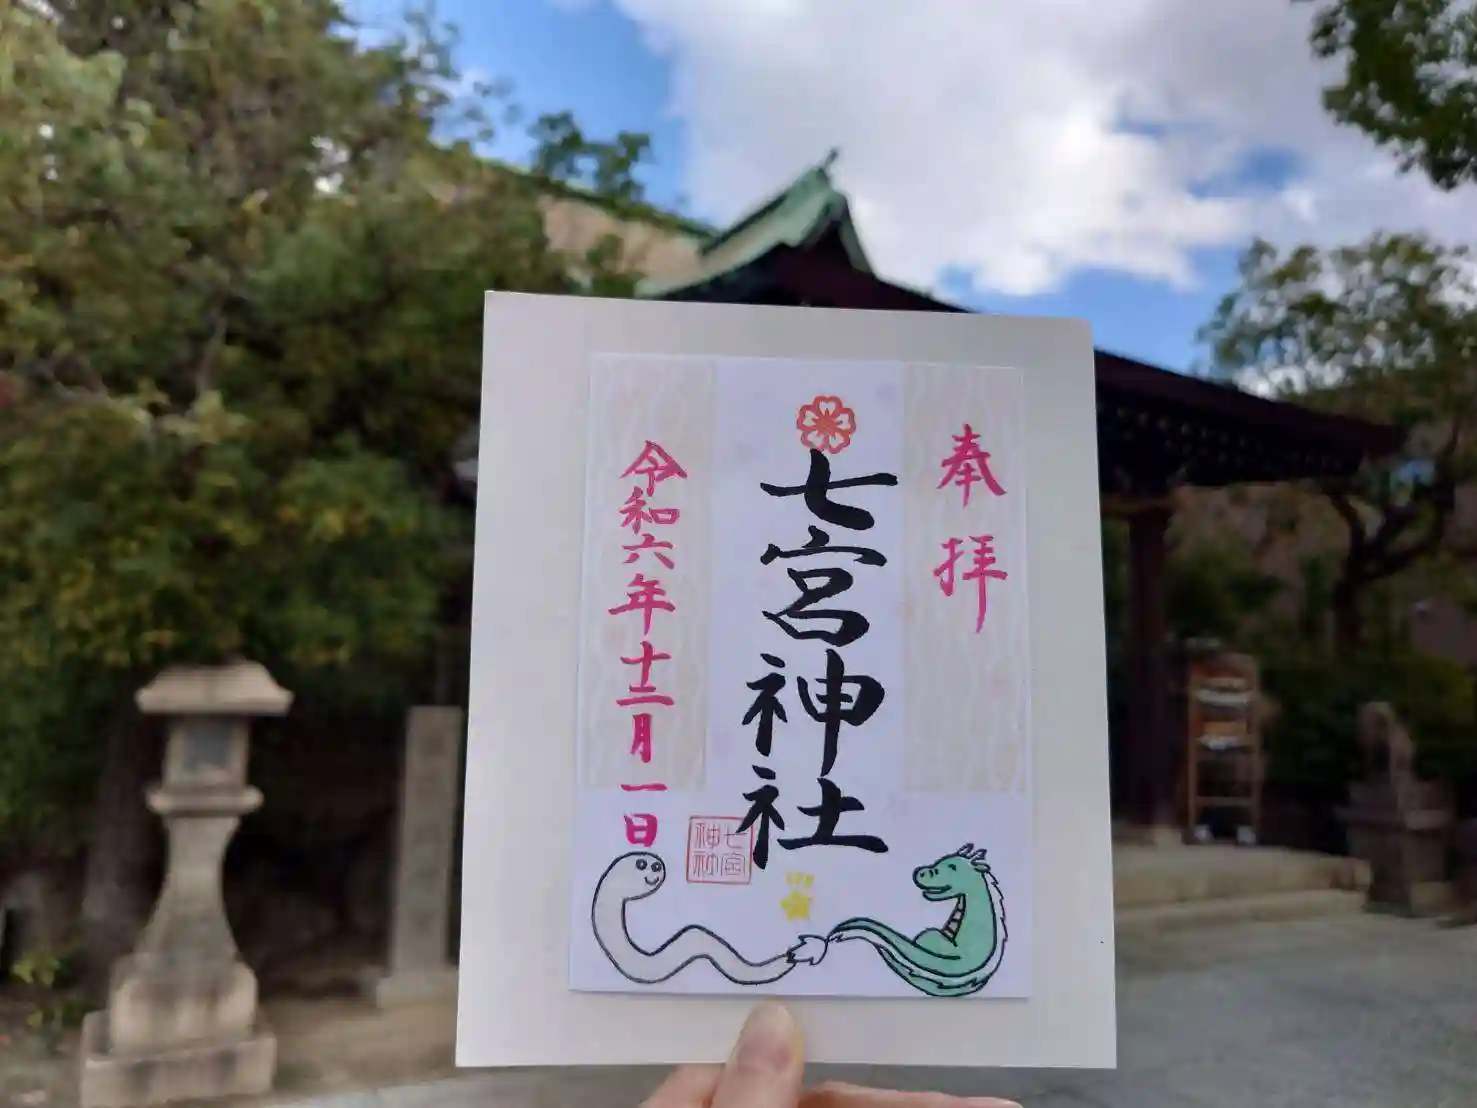 奉拝
七宮神社
令和六年十二月一日
七宮
神社